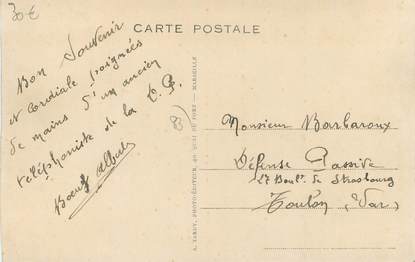 30€
CARTE POSTALE
Bon Souvenir
et cordiale poignées
de mains d'un ancien
téléphoniste de la D.P.
Boeuf Albert
Monsieur Barbaroux
Défense Passive
27 Boul. de Strasbourg
Toulon (Var)
A. TARDY, PHOTO-ÉDITEUR, 40 QUAI DU PORT - MARSEILLE